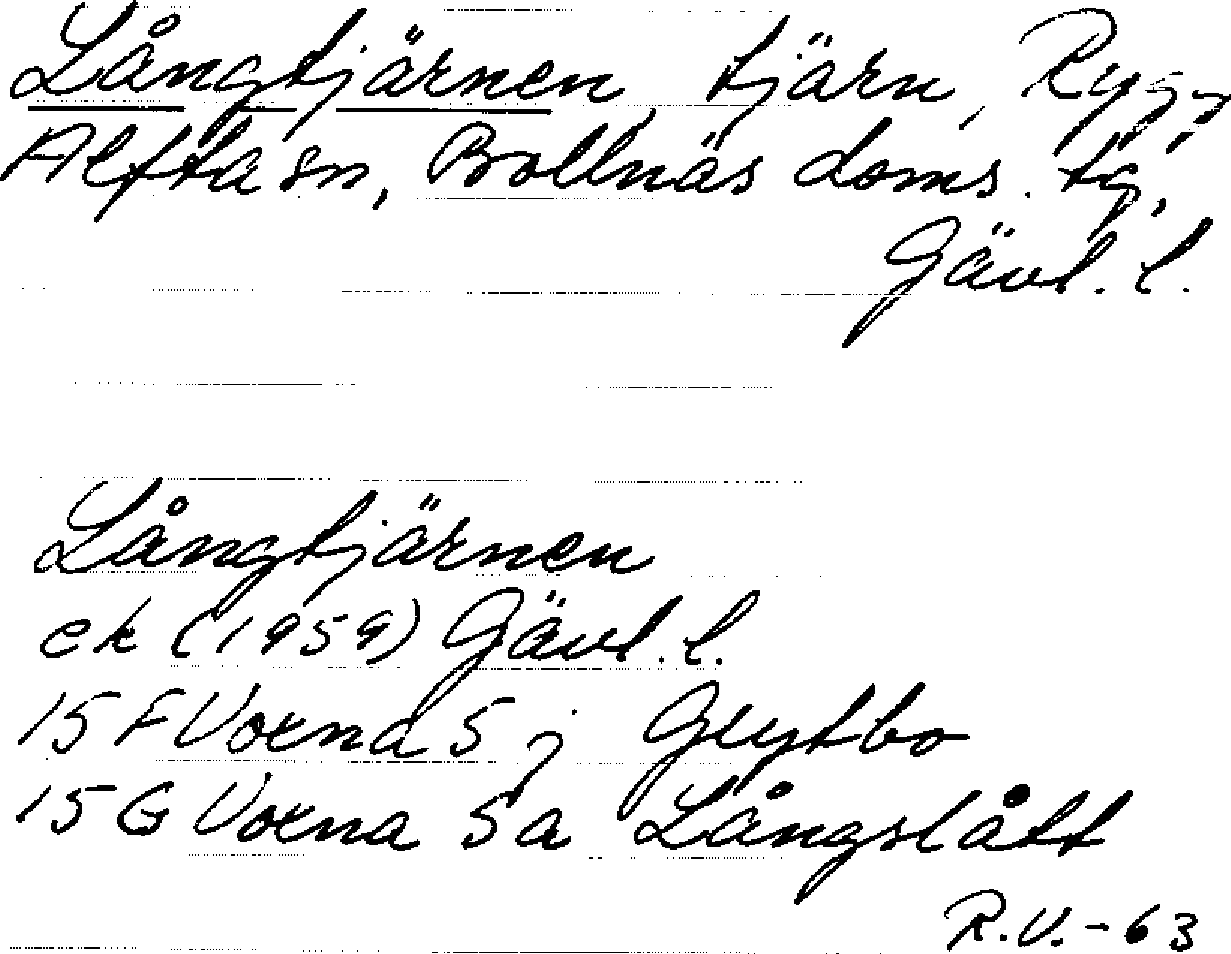 Långtjärnen, tjärn, Rygg,
Alfta sn, Bollnäs doms. tg,
Gävl. l.
Långtjärnen
ek (1959) Gävl. l.
15 F Voxna 5 j Grytbo
15 G Voxna 5 a Långslått
R.V.-63